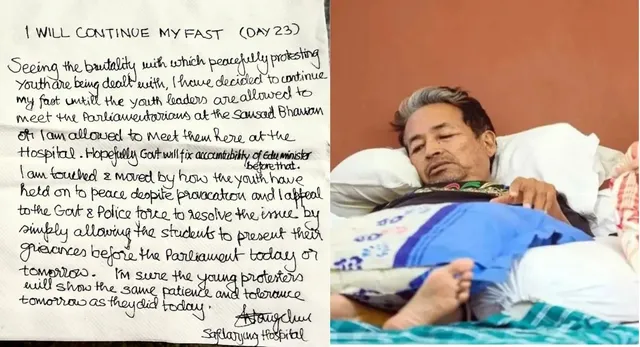 I WILL CONTINUE MY FAST (DAY 23)
Seeing the brutality with which peacefully protesting
youth are being dealt with, I have decided to continue
my fast untill the youth leaders are allowed to
meet the Parliamentarians at the Sansad Bhawan
or I am allowed to meet them here at the
Hospital. Hopefully Govt will fix accountability of Edu minister
before that.
I am touched & moved by how the youth have
held on to peace despite provocation and I appeal
to the Govt & Police force to resolve the issue by
simply allowing the students to present their
grievances before the Parliament today or
tomorrow. I'm sure the young protesters
will show the same patience and tolerance
tomorrow as they did today.
Safdarjung Hospital